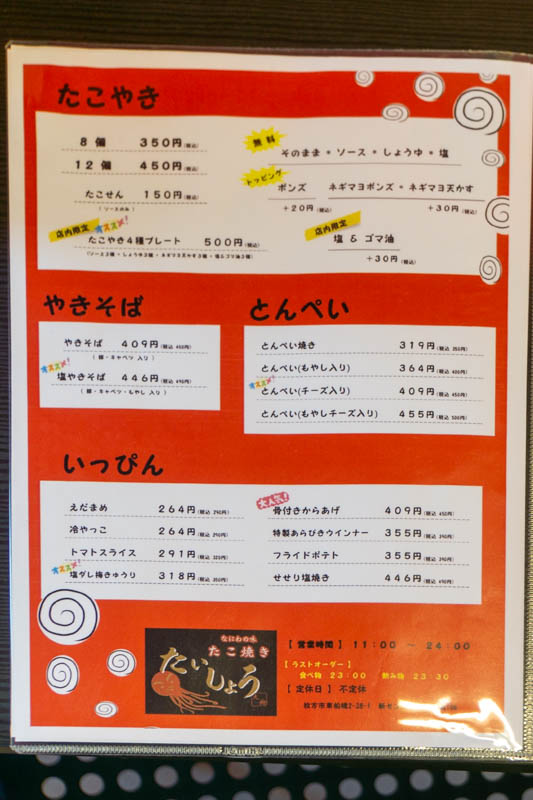 たこやき
8 個 350円(税込)
12 個 450円(税込)
たこせん 150円(税込)
(ソースのみ)
店内限定 オススメ!
たこやき4種プレート 500円(税込)
無料
そのまま・ソース・しょうゆ・塩
トッピング
ポンズ ネギマヨポンズ・ネギマヨ天かす
+20円(税込) +30円(税込)
店内限定
塩 & ゴマ油
+30円(税込)
やきそば
やきそば 409円(税込 450円)
(豚・キャベツ 入り)
オススメ!
塩やきそば 446円(税込 490円)
(豚・キャベツ・もやし 入り)
とんぺい
とんぺい焼き 319円(税込 350円)
とんぺい(もやし入り) 364円(税込 400円)
オススメ!
とんぺい(チーズ入り) 409円(税込 450円)
とんぺい(もやしチーズ入り) 455円(税込 500円)
いっぴん
えだまめ 264円(税込 290円)
冷やっこ 264円(税込 290円)
トマトスライス 291円(税込 320円)
オススメ!
塩ダレ梅きゅうり 318円(税込 350円)
大人気!
骨付きからあげ 409円(税込 450円)
特製あらびきウインナー 355円(税込 390円)
フライドポテト 355円(税込 390円)
せせり塩焼き 446円(税込 490円)
なにわの味
たこ焼き
たいしょう
【 営業時間 】 11:00 ~ 24:00
【 ラストオーダー 】
食べ物 23:00 飲み物 23:30
【 定休日 】 不定休
枚方市東船橋2-38-1